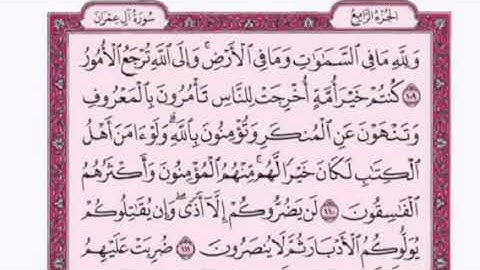 الجزء الرابع سورة آل عمران
وَلِلَّهِ مَا فِي السَّمَاوَاتِ وَمَا فِي الْأَرْضِ ۚ وَإِلَى اللَّهِ تُرْجَعُ الْأُمُورُ
١٠٩ كُنتُمْ خَيْرَ أُمَّةٍ أُخْرِجَتْ لِلنَّاسِ تَأْمُرُونَ بِالْمَعْرُوفِ
وَتَنْهَوْنَ عَنِ الْمُنكَرِ وَتُؤْمِنُونَ بِاللَّهِ ۗ وَلَوْ ءَامَنَ أَهْلُ
الْكِتَابِ لَكَانَ خَيْرًا لَّهُم ۚ مِّنْهُمُ الْمُؤْمِنُونَ وَأَكْثَرُهُمُ
الْفَاسِقُونَ ١١٠ لَن يَضُرُّوكُمْ إِلَّا أَذًى ۖ وَإِن يُقَاتِلُوكُمْ
يُوَلُّوكُمُ الْأَدْبَارَ ثُمَّ لَا يُنصَرُونَ ١١١ ضُرِبَتْ عَلَيْهِمُ